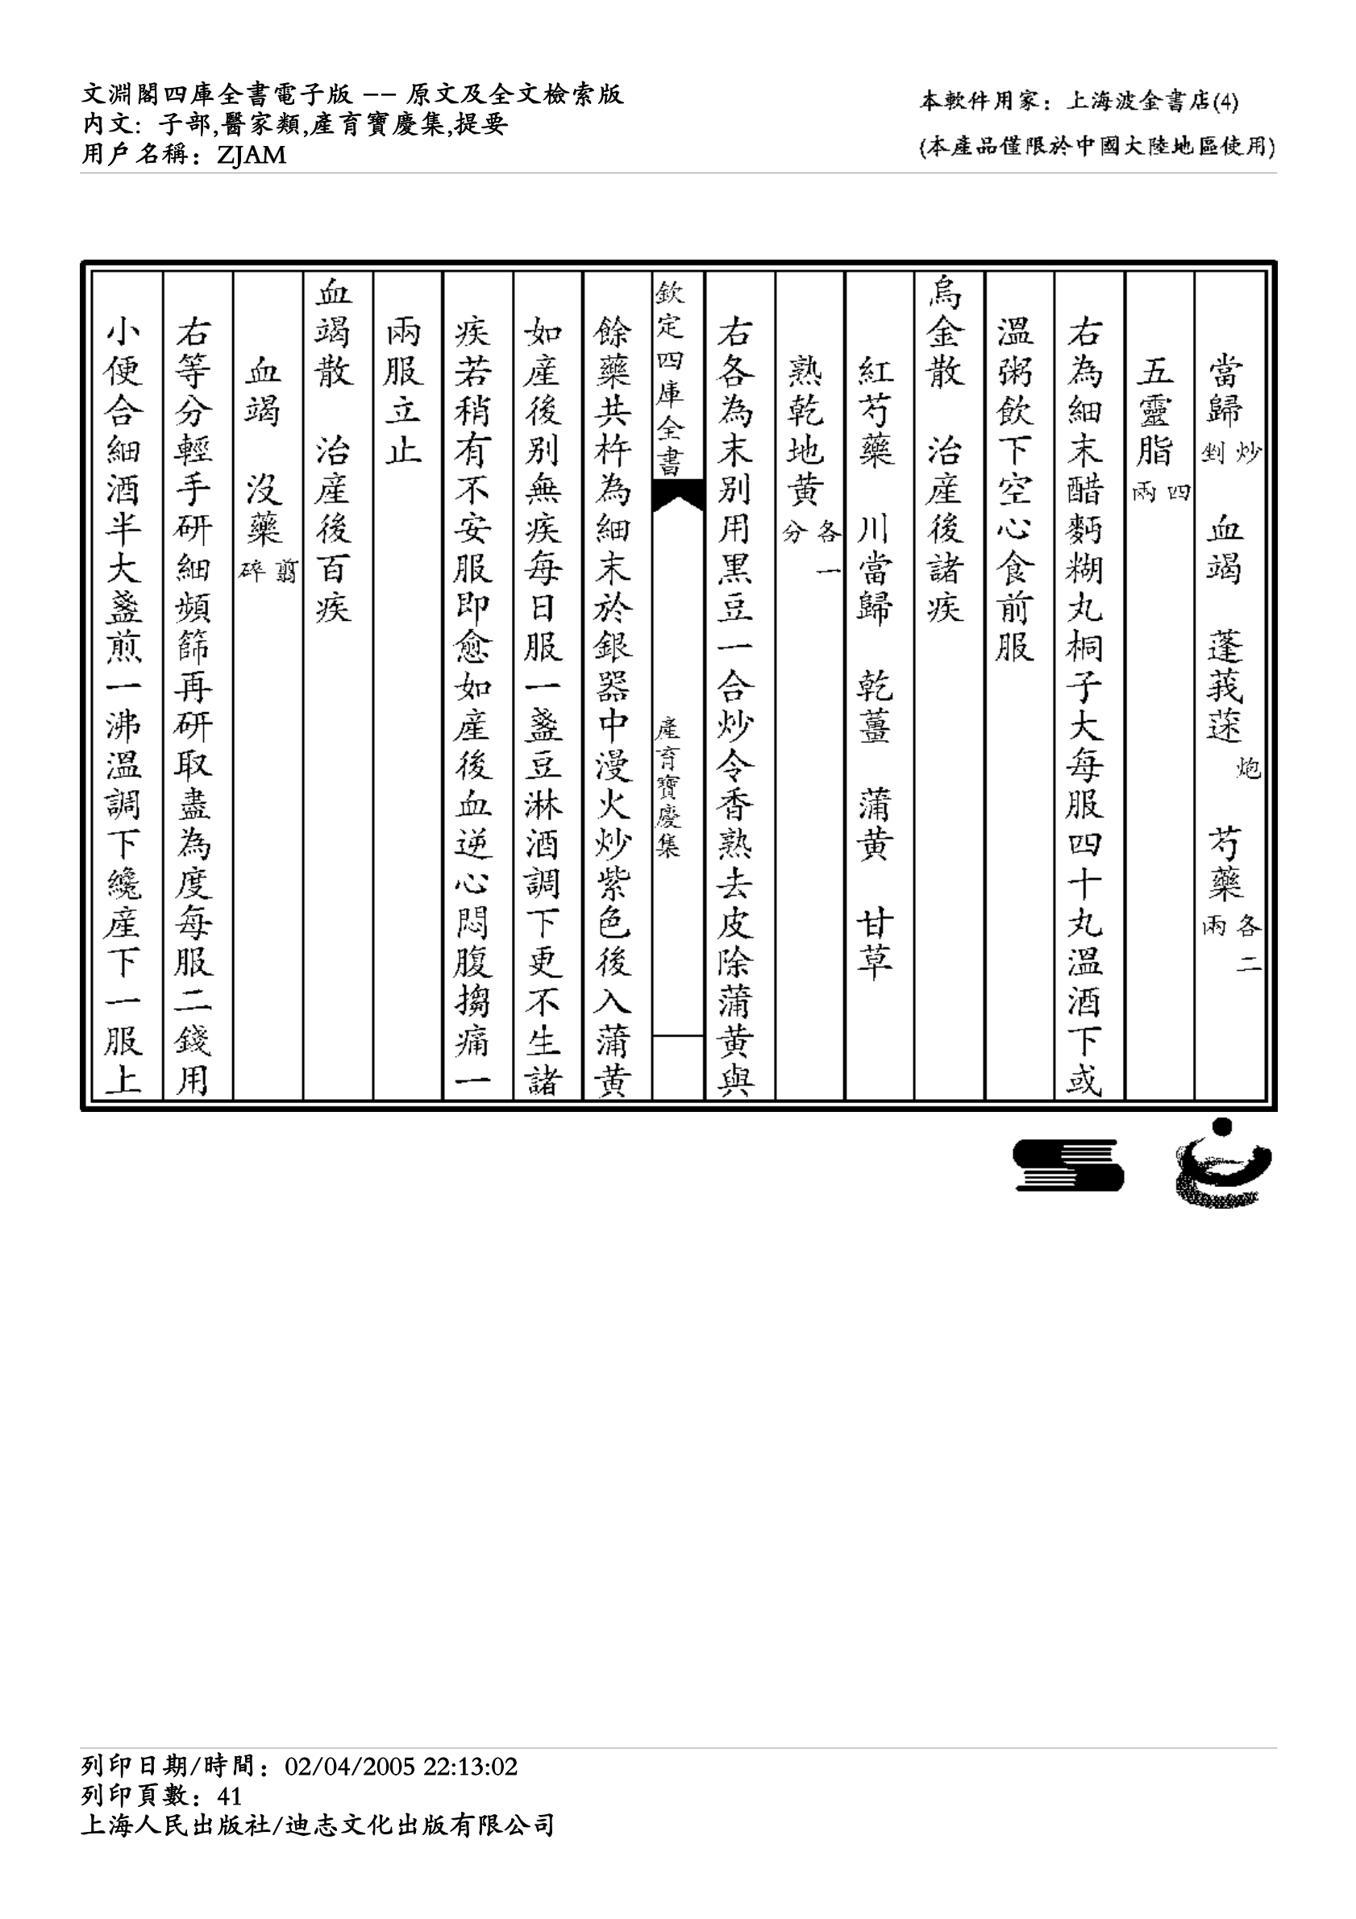 文淵閣四庫全書電子版 -- 原文及全文檢索版
内文: 子部,醫家類,產育寶慶集,提要
用戶名稱: ZJAM
本軟件用家: 上海波金書店(4)
(本產品僅限於中國大陸地區使用)
當歸炒剉 血竭 蓬莪蒁炮 芍藥各二兩
五靈脂四兩
右為細末醋麪糊丸桐子大每服四十丸溫酒下或
溫粥飲下空心食前服
烏金散 治產後諸疾
紅芍藥 川當歸 乾薑 蒲黄 甘草
熟乾地黄各一分
右各為末别用黑豆一合炒令香熟去皮除蒲黄與
欽定四庫全書
產育寶慶集
餘藥共杵為細末於銀器中漫火炒紫色後入蒲黄
如產後别無疾每日服一盞豆淋酒調下更不生諸
疾若稍有不安服即愈如產後血逆心悶腹搊痛一
兩服立止
血竭散 治產後百疾
血竭 沒藥翦碎
右等分輕手研細頻篩再研取盡為度每服二錢用
小便合細酒半大盞煎一沸溫調下纔產下一服上
列印日期/時間: 02/04/2005 22:13:02
列印頁數: 41
上海人民出版社/迪志文化出版有限公司